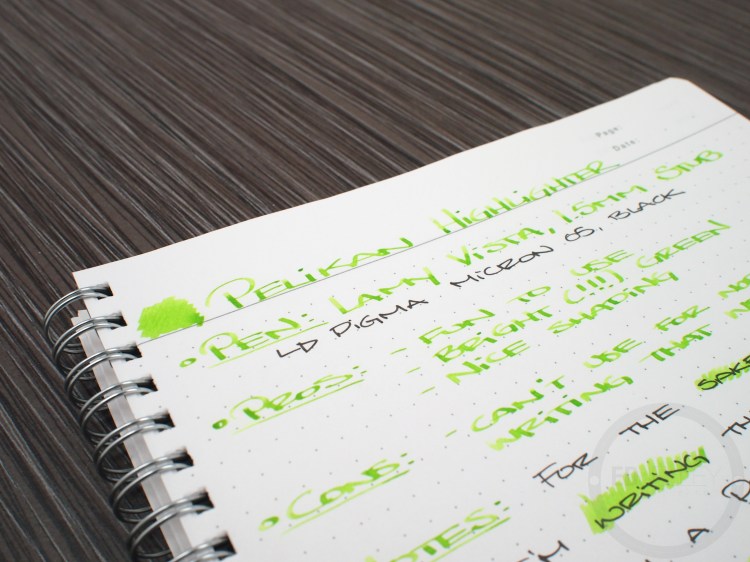 Page:
Date:
PELIKAN HIGHLIGHTER
• PEN: LAMY VISTA, 1.5MM STUB
↳ PIGMA MICRON 05, BLACK
• PROS: - FUN TO USE
- BRIGHT (!!!) GREEN
- NICE SHADING
• CONS: - CAN'T USE FOR
WRITING THAT
NOTES: FOR THE SAKE
I'M WRITING
A